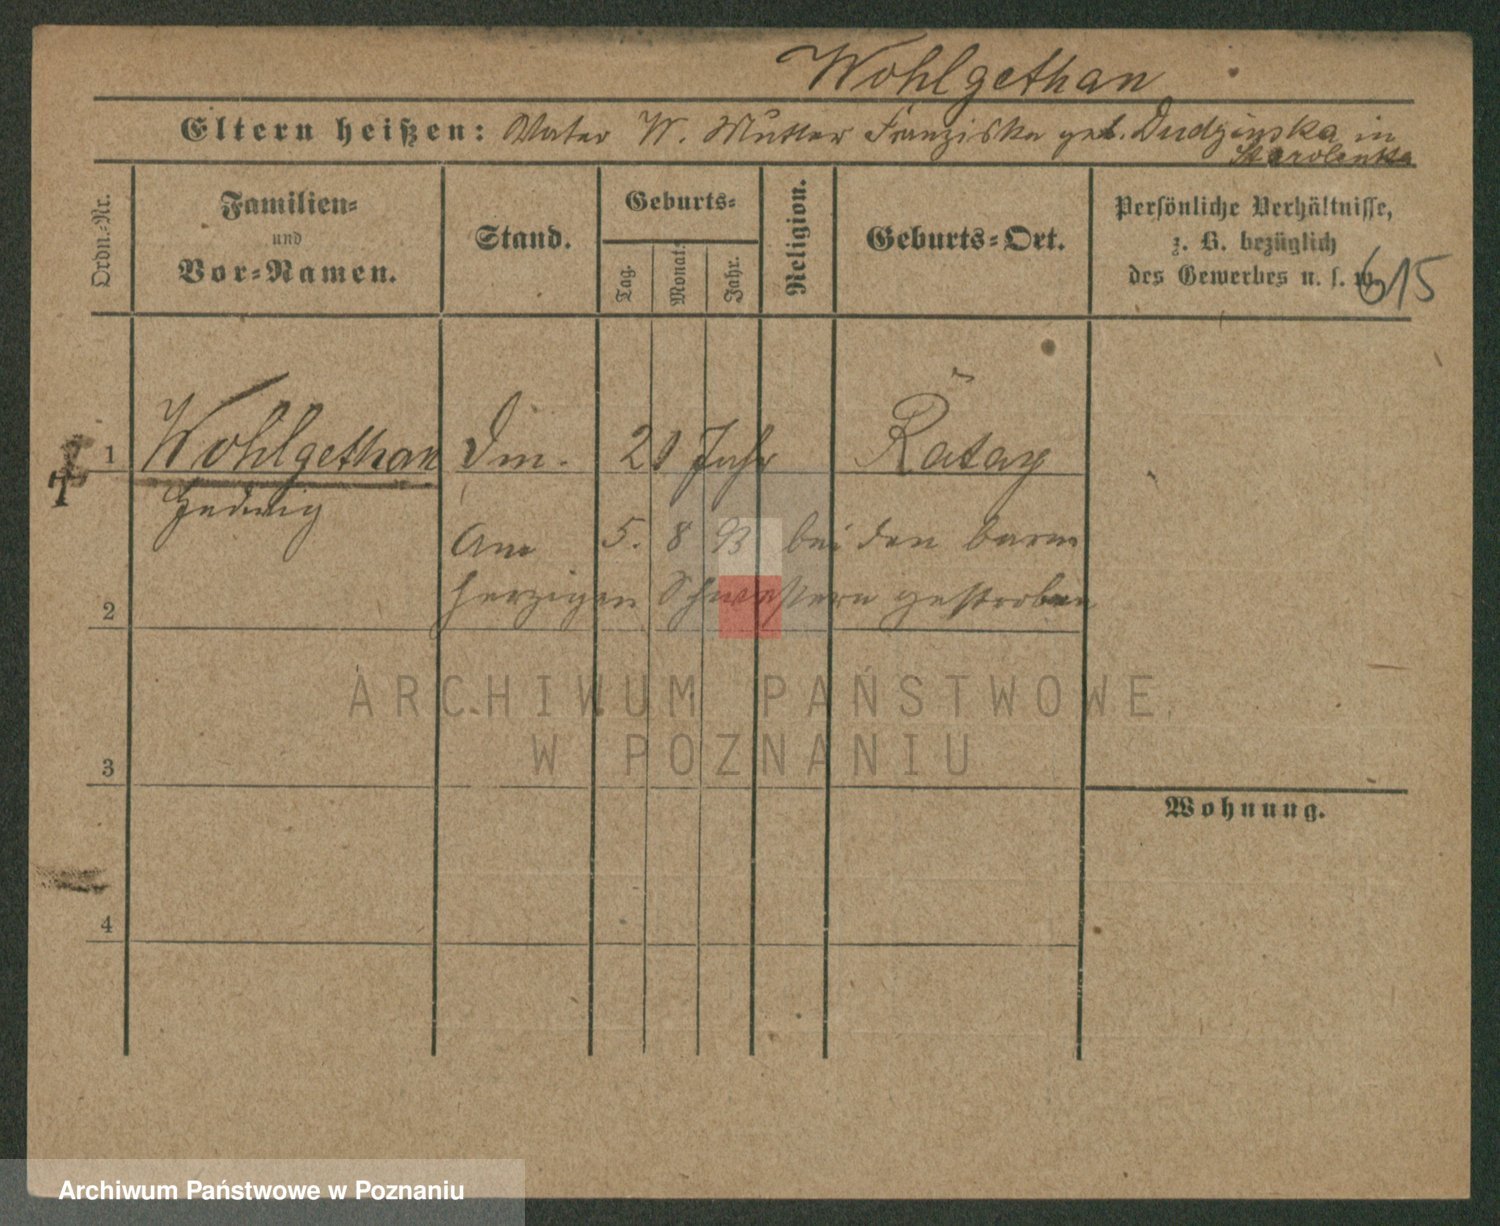 Wohlgethan
Eltern heißen: Vater W. Mutter Franziska geb. Dudzinska in
Starolenka
Ordn.-Nr.
Familien-
und
Vor-Namen.
Stand.
Geburts-
Tag.
Monat.
Jahr.
Religion.
Geburts-Ort.
Persönliche Verhältnisse,
z. B. bezüglich
des Gewerbes u. s. w.
615
1 Wohlgethan 21 Jahr Ratay
Hedwig
Am 5. 8 93 bei den barm
herzigen Schwestern gestorben
2
ARCHIWUM PAŃSTWOWE
W POZNANIU
3
Wohnung.
4
Archiwum Państwowe w Poznaniu